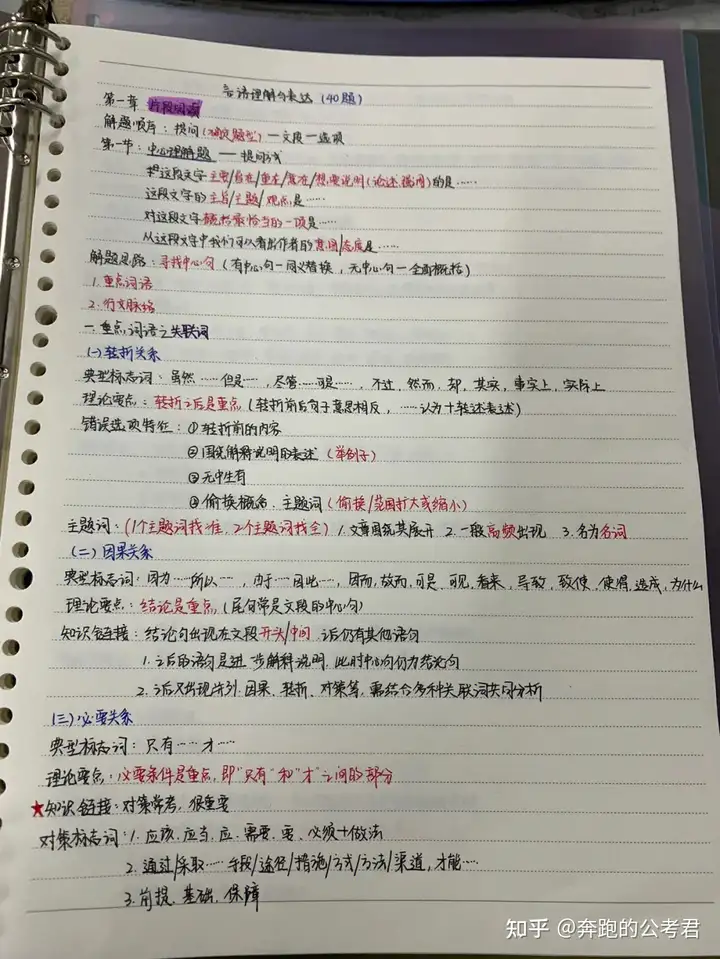 言语理解与表达(40题)
第一章 片段阅读
解题顺序：提问(确定题型)—文段—选项
第一节：中心理解题 —— 提问方式
这段文字主要/旨在/重在/意在/想要说明(论述、强调)的是……
这段文字的主旨/主题/观点是……
对这段文字概括最恰当的一项是……
从这段文字中我们可以看出作者的意图/态度是……
解题思路：寻找中心句(有中心句—同义替换，无中心句—全面概括)
1.重点词语
2.行文脉络
一.重点词语之关联词
(一)转折关系
典型标志词：虽然……但是……，尽管……可是……，不过，然而，却，其实，事实上，实际上
理论要点：转折之后是重点(转折前后句子意思相反，……认为+转述表述)
错误选项特征：①转折前的内容
②围绕解释说明的表述(举例子)
③无中生有
④偷换概念、主题词(偷换/范围扩大或缩小)
主题词：(1个主题词找准，2个主题词找全) 1.文章围绕其展开 2.一般高频出现 3.多为名词
(二)因果关系
典型标志词：因为……所以……，由于……因此……，因而，故而，于是，可见，看来，导致，致使，使得，造成，为什么
理论要点：结论是重点(尾句常是文段的中心句)
知识链接：结论句出现在文段开头/中间，之后仍有其他语句
1.之后的语句是进一步解释说明，此时中心句仍为结论句
2.之后又出现并列、因果、转折、对策等，需结合多种关联词共同分析
(三)必要关系
典型标志词：只有……才……
理论要点：必要条件是重点，即"只有"和"才"之间的部分
★知识链接：对策常考，很重要
对策标志词：1.应该、应当、应、需要、要、必须+做法
2.通过/采取……手段/途径/措施/方式/方法/渠道，才能……
3.前提、基础、保障
知乎 @奔跑的公考君